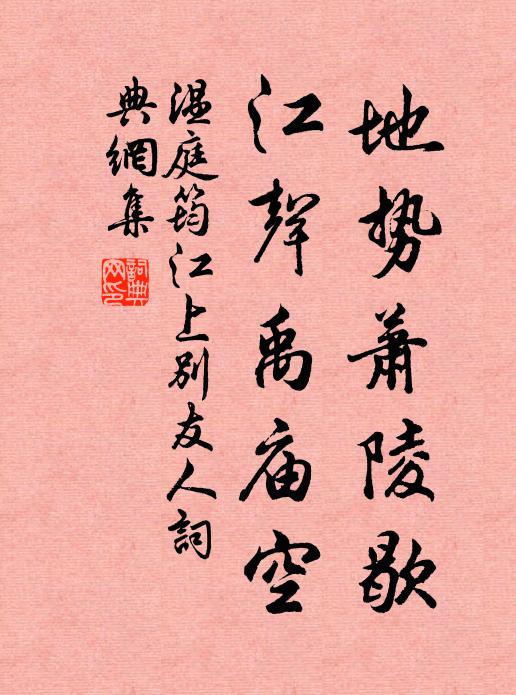 地势萧陵歇
江聲禹庙空
温庭筠江上别友人詞
典網集
詞典网印